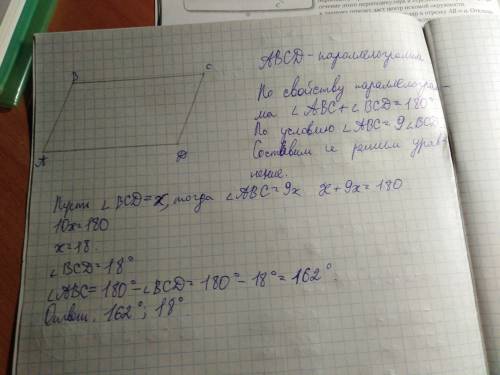 ABCD - параллелограмм
По свойству параллелограм
ма ∠ABC + ∠BCD = 180°
По условию ∠ABC = 9∠BCD
Составим и решим урав-
нение.
B
C
A
D
Пусть ∠BCD = x, тогда ∠ABC = 9x x + 9x = 180
10x = 180
x = 18.
∠BCD = 18°
∠ABC = 180° - ∠BCD = 180° - 18° = 162°.
Ответ. 162°; 18°